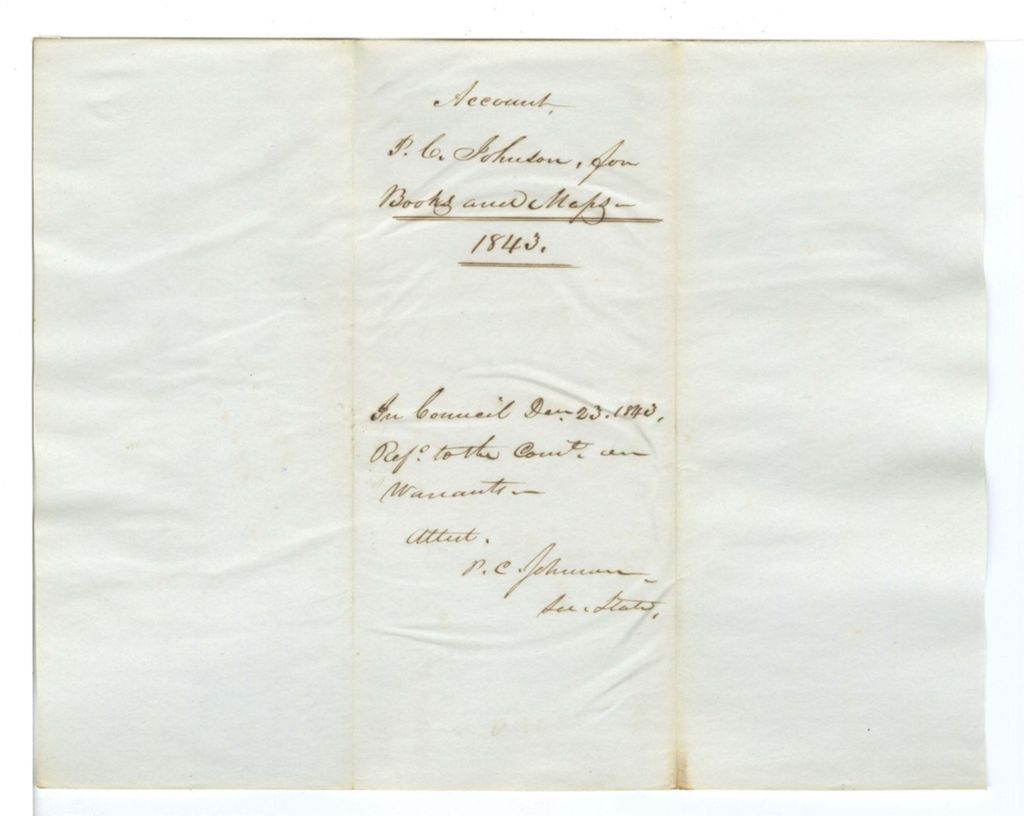 Account,
P. C. Johnson, for
Books and Maps–
1843.
In Council Dec. 23. 1843.
Refd. to the Comt. on
Warrants–
Attest.
P. C. Johnson–
Sec. State.